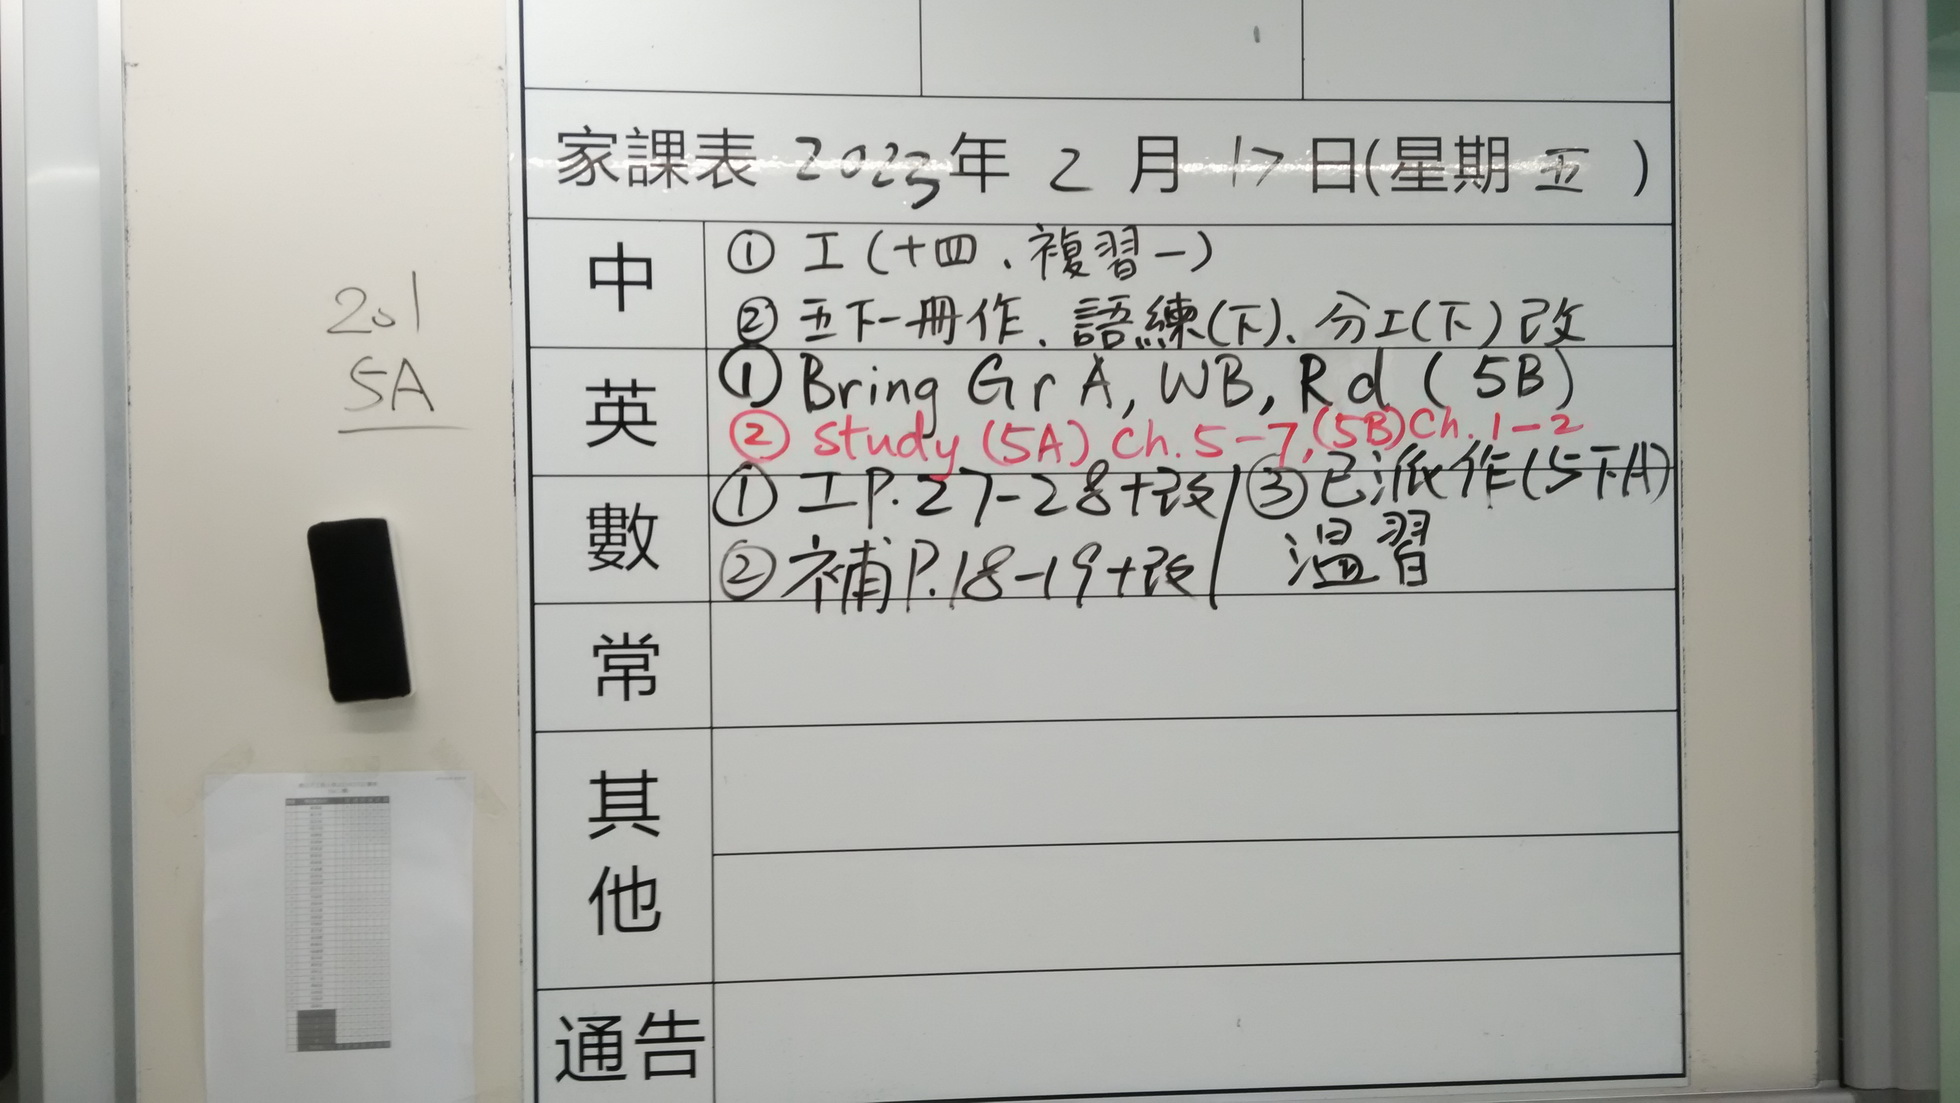 家課表 2023年 2 月 17 日(星期 五 )
201
5A
中
① 工(十四、複習一)
② 五下一冊作、語練(下)、分工(下)改
英
① Bring Gr A, WB, Rd (5B)
② study (5A) Ch. 5-7, (5B) Ch. 1-2
數
① 工P.27-28+改
② 補P.18-19+改
③ 已派作(5下A)
溫習
常
其他
通告